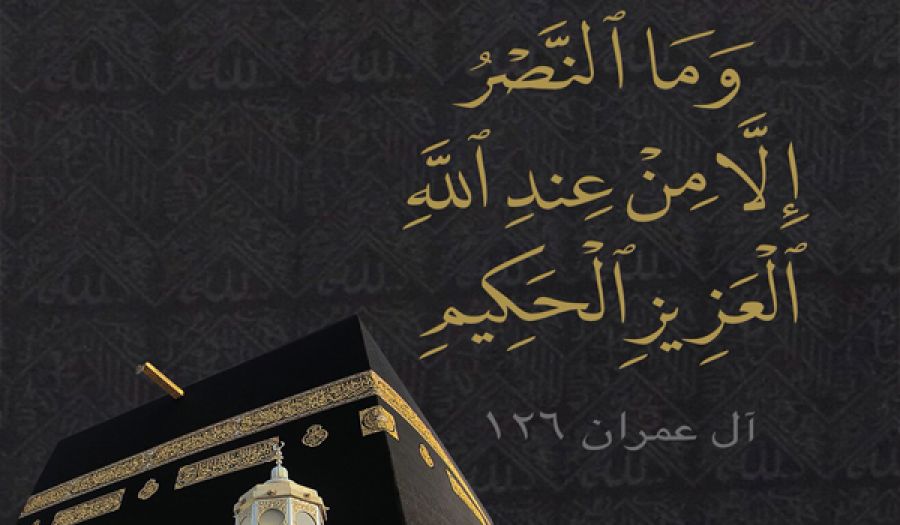 وَمَا ٱلنَّصْرُ
إِلَّا مِنْ عِندِ ٱللَّهِ
ٱلْعَزِيزِ ٱلْحَكِيمِ
آل عمران ١٢٦